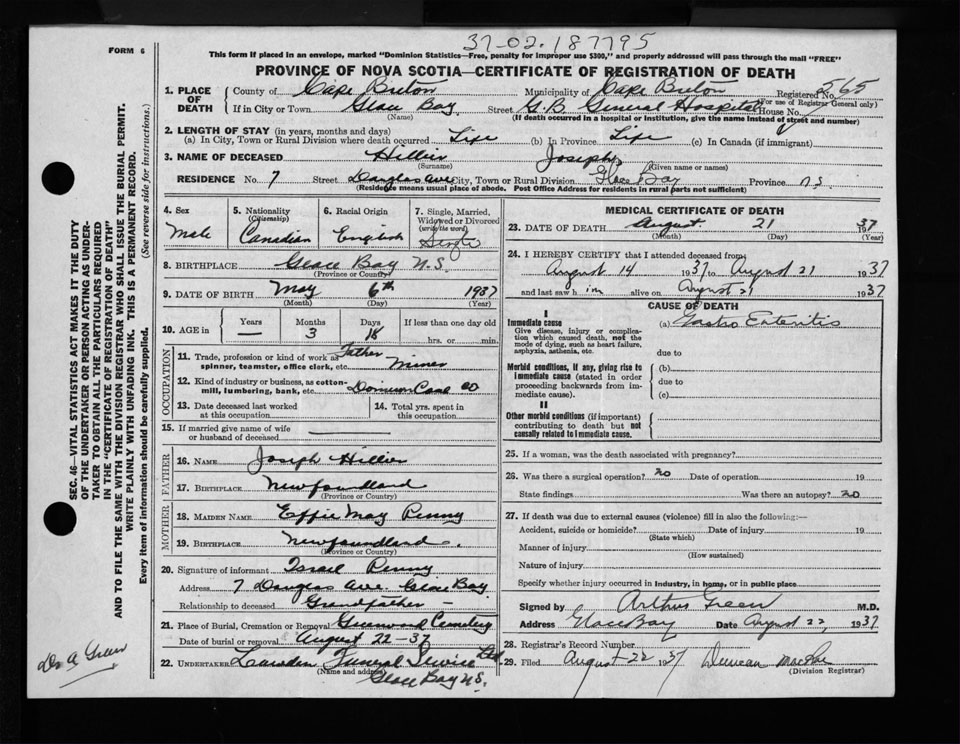 37-02.187795
FORM 6
This form if placed in an envelope, marked "Dominion Statistics—Free, penalty for improper use $300," and properly addressed will pass through the mail "FREE"
PROVINCE OF NOVA SCOTIA—CERTIFICATE OF REGISTRATION OF DEATH
1. PLACE OF DEATH County of Cape Breton Municipality of Cape Breton Registered No. 565
(For use of Registrar General only)
If in City or Town Glace Bay Street G.B. General Hospital House No.
(Name) (If death occurred in a hospital or institution, give the name instead of street and number)
2. LENGTH OF STAY (in years, months and days)
(a) In City, Town or Rural Division where death occurred Life (b) In Province Life (c) In Canada (if immigrant)
3. NAME OF DECEASED Hillier Joseph
(Surname) (Given name or names)
RESIDENCE No. 7 Street Douglas Ave City, Town or Rural Division Glace Bay Province N.S.
(Residence means usual place of abode. Post Office Address for residents in rural parts not sufficient)
4. Sex Male
5. Nationality (Citizenship) Canadian
6. Racial Origin English
7. Single, Married, Widowed or Divorced (write the word) Single
8. BIRTHPLACE Glace Bay N.S.
(Province or Country)
9. DATE OF BIRTH May 6th 1937
(Month) (Day) (Year)
10. AGE in Years — Months 3 Days 16 If less than one day hrs. or min.
OCCUPATION
11. Trade, profession or kind of work as spinner, teamster, office clerk, etc. Father Miner
12. Kind of industry or business, as cotton-mill, lumbering, bank, etc. Dominion Coal Co
13. Date deceased last worked at this occupation
14. Total yrs. spent in this occupation
15. If married give name of wife or husband of deceased
FATHER
16. NAME Joseph Hillier
17. BIRTHPLACE Newfoundland
(Province or Country)
MOTHER
18. MAIDEN NAME Effie May Penny
19. BIRTHPLACE Newfoundland
(Province or Country)
20. Signature of informant Israel Penny
Address 7 Douglas Ave. Glace Bay
Relationship to deceased Grandfather
21. Place of Burial, Cremation or Removal Greenwood Cemetery
Date of burial or removal August 22-37
22. UNDERTAKER Funeral Service Ltd.
(Name and address) Glace Bay N.S.
MEDICAL CERTIFICATE OF DEATH
23. DATE OF DEATH August 21 1937
(Month) (Day) (Year)
24. I HEREBY CERTIFY that I attended deceased from
August 14 1937 to August 21 1937
and last saw him alive on August 21 1937
CAUSE OF DEATH
I
Immediate cause (a) Gastro Enteritis
Give disease, injury or complication which caused death, not the mode of dying, such as heart failure, asphyxia, asthenia, etc.
due to
Morbid conditions, if any, giving rise to immediate cause (stated in order proceeding backwards from immediate cause).
(b)
due to
(c)
II
Other morbid conditions (if important) contributing to death but not causally related to immediate cause.
25. If a woman, was the death associated with pregnancy?
26. Was there a surgical operation? no Date of operation 19
State findings Was there an autopsy? no
27. If death was due to external causes (violence) fill in also the following:—
Accident, suicide or homicide? Date of injury 19
(State which)
Manner of injury
(How sustained)
Nature of injury
Specify whether injury occurred in industry, in home, or in public place
Signed by Arthur Green M.D.
Address Glace Bay Date August 22, 1937
28. Registrar's Record Number
29. Filed August-22 1937 Duncan MacRae
(Division Registrar)
SEC. 46—VITAL STATISTICS ACT MAKES IT THE DUTY
OF THE UNDERTAKER OR PERSON ACTING AS UNDER-
TAKER TO OBTAIN ALL THE PARTICULARS REQUIRED
IN THE "CERTIFICATE OF REGISTRATION OF DEATH"
AND TO FILE THE SAME WITH THE DIVISION REGISTRAR WHO SHALL ISSUE THE BURIAL PERMIT.
WRITE PLAINLY WITH UNFADING INK. THIS IS A PERMANENT RECORD.
Every item of information should be carefully supplied. (See reverse side for instructions.)
Dr A Green